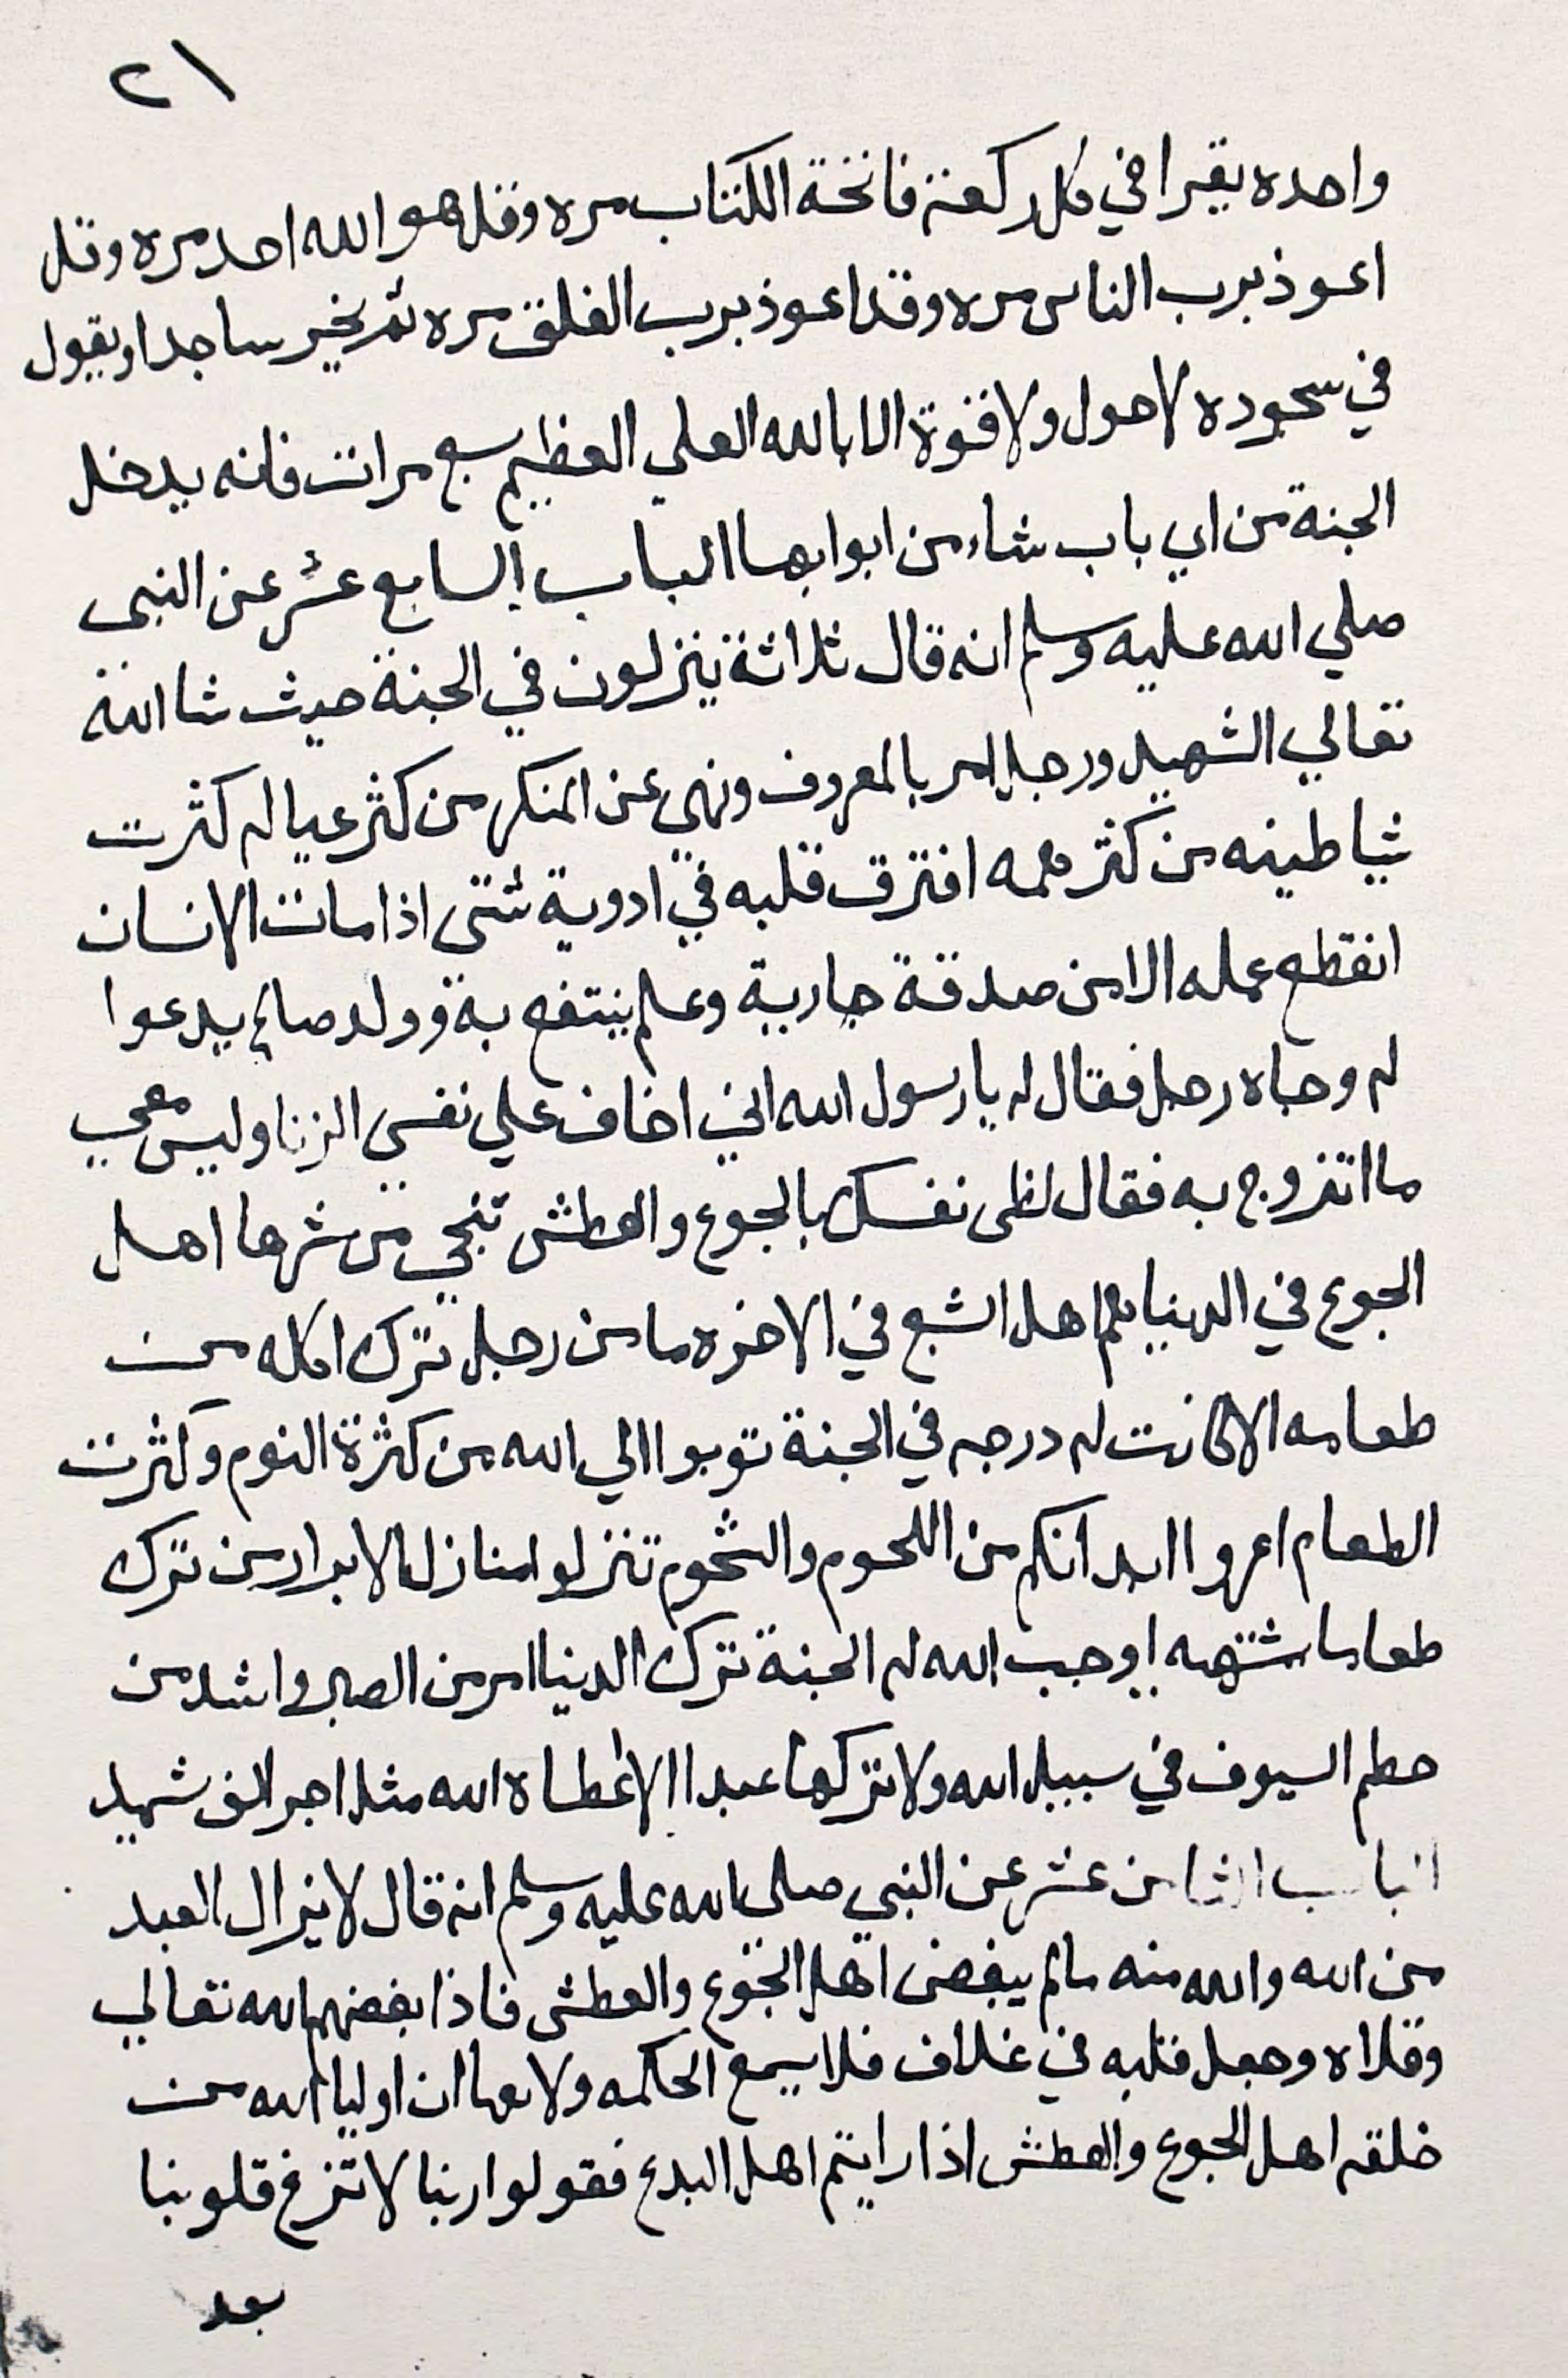 ٢١
واحده يقرا في كل ركعة فاتحة الكتاب مره وقل هو الله احد مره وقل
اعوذ برب الناس مره وقل اعوذ برب الفلق مره ثم يخير ساجدا ويقول
في سجوده لا حول ولا قوة الا بالله العلي العظيم سبع مرات فانه يدخل
الجنة من اي باب شاء من ابوابها الباب السابع عشر عن النبي
صلي الله عليه وسلم انه قال ثلاثة ينزلون في الجنة حيث شا الله
تعالي الشهيد ورجل امر بالمعروف ونهي عن المنكر من كثر عياله كثرت
شياطينه من كثر همه افترق قلبه في ادوية شتى اذا مات الانسان
انقطع عمله الا من صدقة جارية وعلم ينتفع به وولد صالح يدعوا
له وجاه رجل فقال له يا رسول الله اني اخاف علي نفسي الزنا وليس معي
ما اتزوج به فقال نفسك بالجوع والعطش تنجي من شرها اهل
الجوع في الدنيا هم اهل الشبع في الاخره ما من رجل ترك اكله من
طعامه الا كانت له درجه في الجنة توبوا الي الله من كثرة النوم وكثرت
الطعام اعروا ابدانكم من اللحوم والشحوم تنزلوا منازل الابرار من ترك
طعاما شتهيه اوجب الله له الجنة ترك الدنيا امر من الصبر واشد من
حطم السيوف في سبيل الله ولا تركها عبدا الا اعطاه الله مثل اجر الف شهيد
الباب الثامن عشر عن النبي صلى الله عليه وسلم انه قال لا يزال العبد
من الله والله منه مالم يبغض اهل الجوع والعطش فاذا بغضهم الله تعالي
وقلاه وجعل قلبه في غلاف فلا يسمع الحكمه ولا ان اوليا الله من
خلقه اهل الجوع والعطش اذا رايتم اهل البدع فقولوا ربنا لا تزغ قلوبنا
بعد